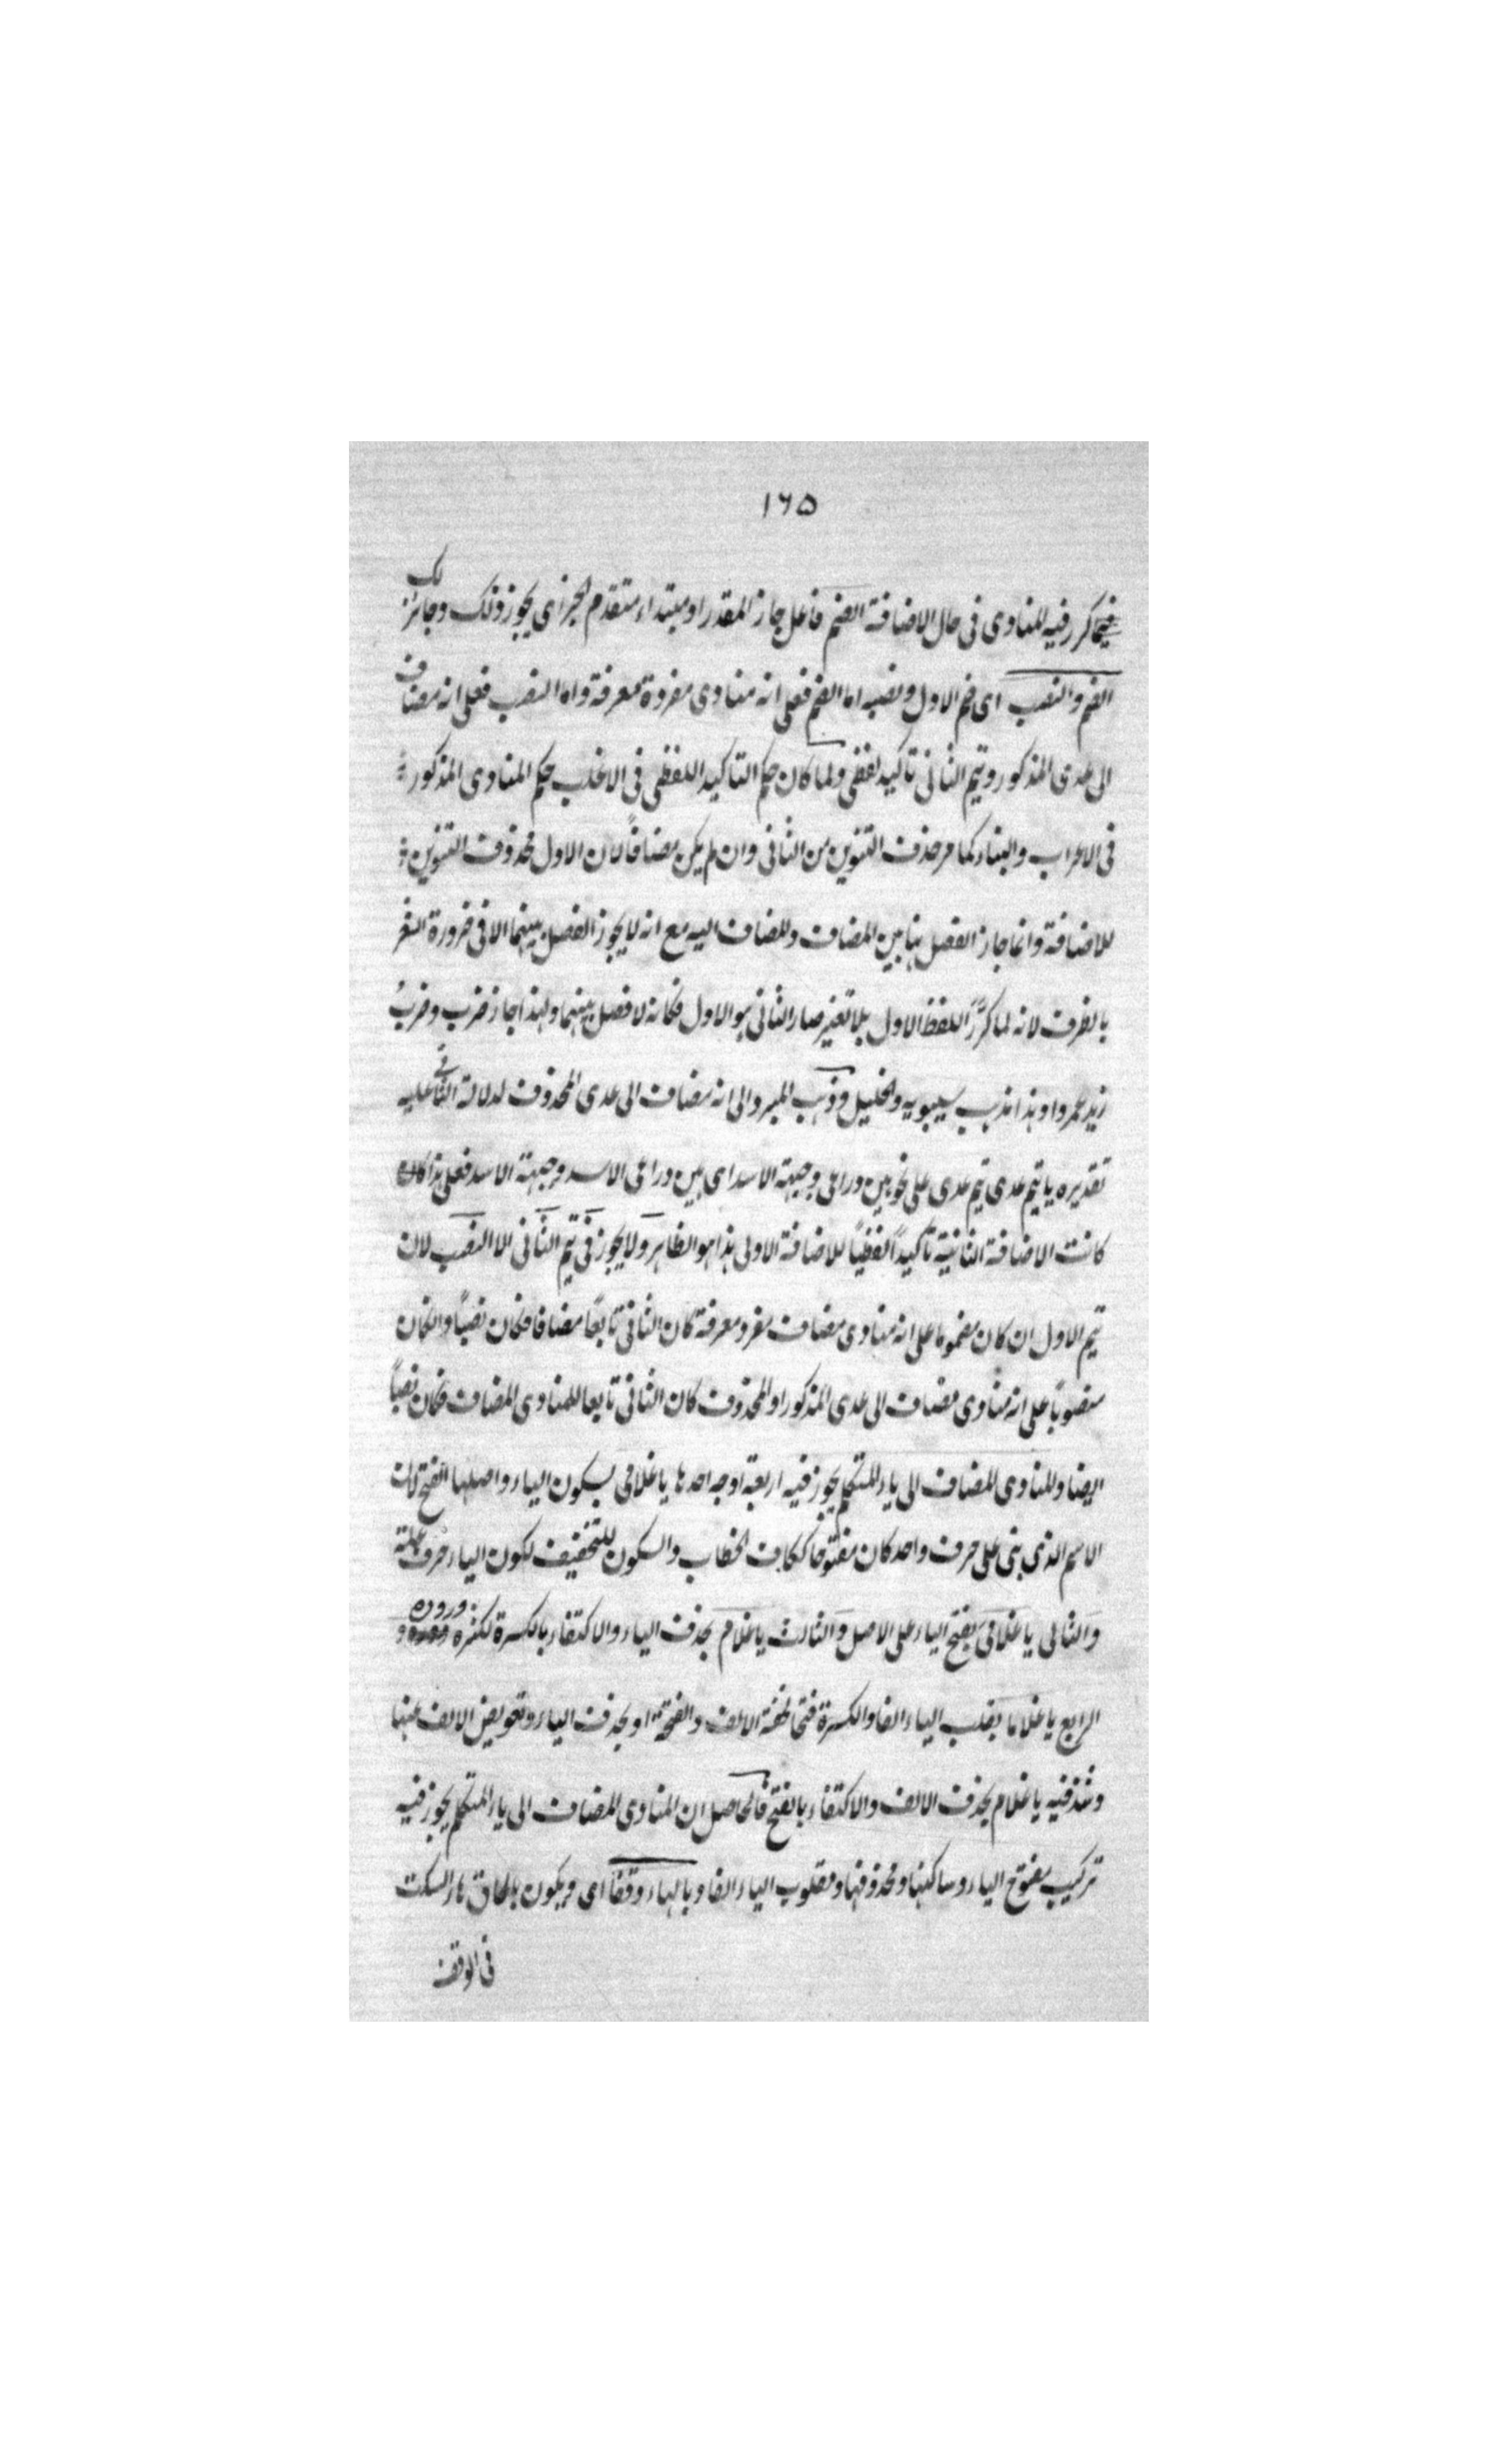 ١٦٥
فيما كرر فيه المنادى فى حال الاضافة الضم فاعل جاز المقدر او مبتداء متقدم الخبر اى يجوز ذلك وجائز لك
الضم والنصب اى ضم الاول ونصبه اما الضم فعلى انه منادى مفردة معرفة واما النصب فعلى انه مضاف
الى عدى المذكور وتيم الثانى تاكيد لفظى ولما كان حكم التاكيد اللفظى فى الاغلب حكم المنادى المذكور
فى الاعراب والبناء كما مر حذف التنوين من الثانى وان لم يكن مضافاً لان الاول محذوف التنوين
للاضافة وانما جاز الفصل هنا بين المضاف والمضاف اليه مع انه لا يجوز الفصل بينهما الا فى ضرورة الشعر
بالظرف لانه لما كرّرَ اللفظ الاول بلا تغير صار الثانى هو الاول فكانه لا فصل بينهما ولهذا جاز ضرب وضربُ
زيد عمروا وهذا مذهب سيبويه والخليل وذهب المبرد الى انه مضاف الى عدى المحذوف لدلالة الثانى عليه
تقديره يا تيم عدى تيم عدى على نحو بين ذراعى وجبهة الاسد اى بين ذراعى الاسد وجبهة الاسد فعلى هذا كان
كانت الاضافة الثانية تأكيداً لفظياً للاضافة الاولى هذا هو الظاهر ولا يجوز فى تيم الثانى الا النصب لان
تيم الاول ان كان مضموما على انه منادى مضاف مفرد معرفة كان الثانى تابعاً مضافا فكان نصباً وان كان
منصوباً على انه منادى مضاف الى عدى المذكور او المحذوف كان الثانى تابعا للمنادى المضاف فكان نصباً
ايضا والمنادى المضاف الى ياء المتكلم يجوز فيه اربعة اوجه احدها يا غلامى بسكون الياء واصلها الفتح لان
الاسم الذى بنى على حرف واحد كان مفتوحا ككاف الخطاب والسكون للتخفيف لكون الياء حرف علة
والثانى يا غلامىَ بفتح الياء على الاصل والثالث يا غلام بحذف الياء والاكتفاء بالكسرة لكثرة وروده و
الرابع يا غلاما بقلب الياء الفا والكسرة فتحا لخفة الالف والفتحة او بحذف الياء وتعويض الالف عنها
وشذ فيه يا غلام بحذف الالف والاكتفاء بالفتح فالحاصل ان المنادى المضاف الى ياء المتكلم يجوز فيه
تركيب مفتوح الياء وساكنها ومحذوفها ومقلوب الياء الفا وبالهاء وقفاً اى ويكون بالحاق هاء السكت
فى الوقف